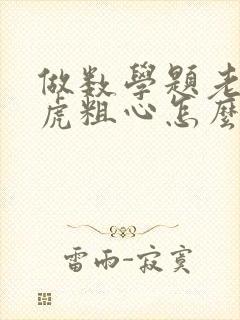 做数學題老
虎粗心怎麼
雷雨-寂寞